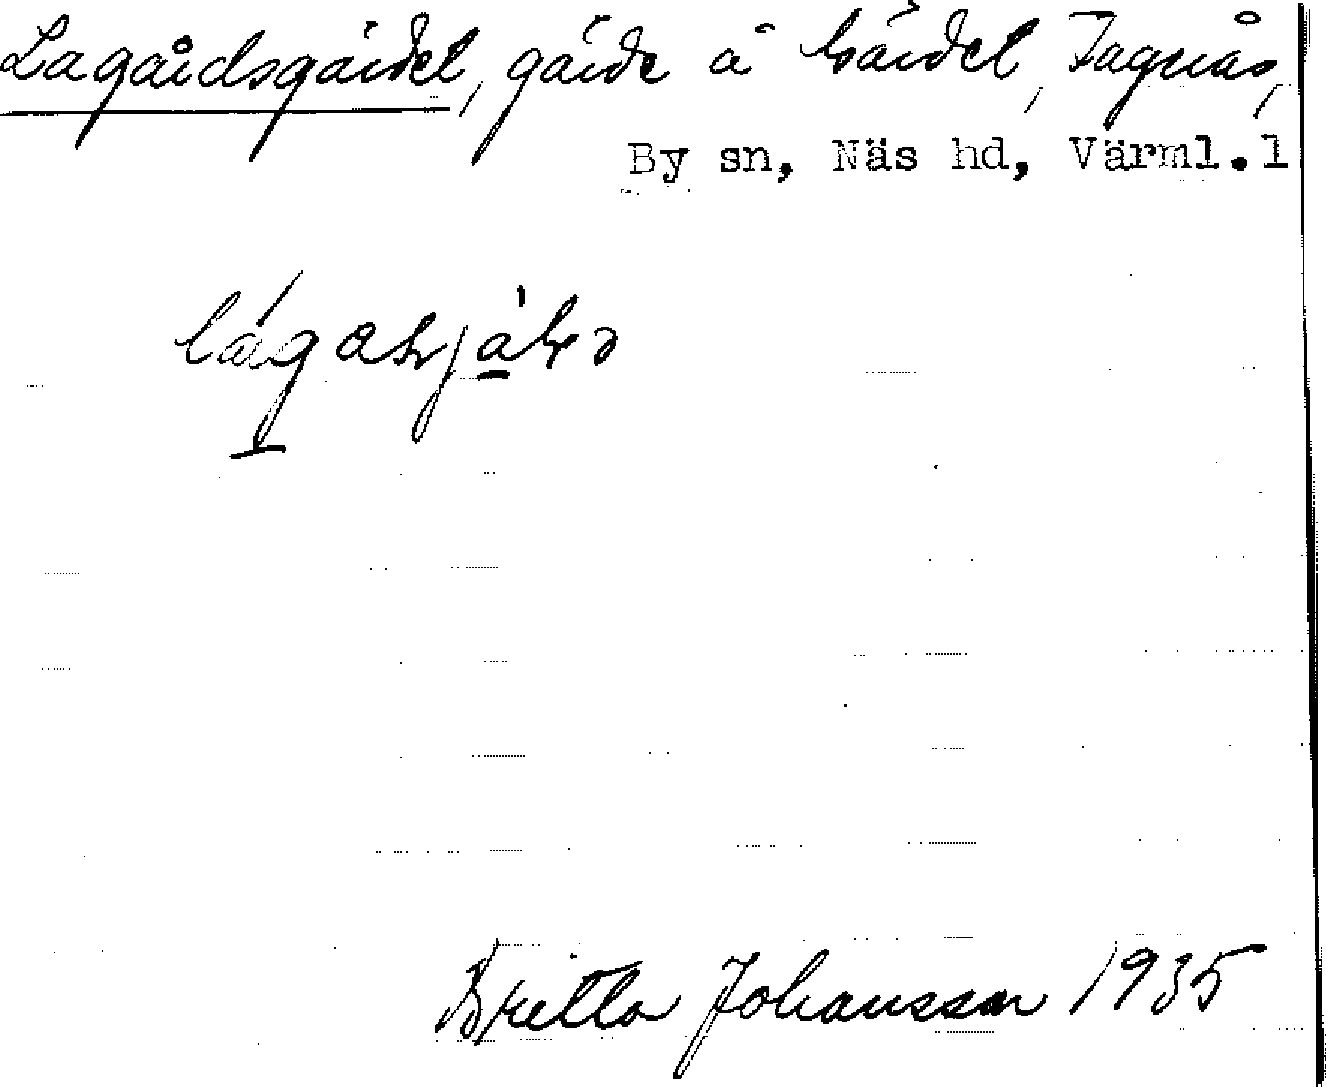 Lagårdsgärdet, gärde å Gärdet, Tagnäs,
By sn, Näs hd, Värml.l
Britta Johansson 1935